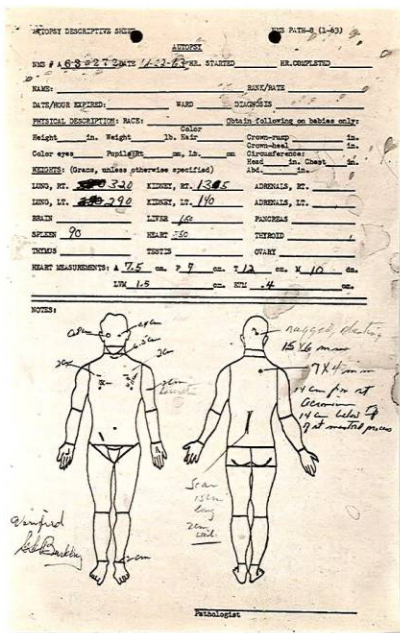 AUTOPSY DESCRIPTIVE SHEET NMS PATH-8 (1-63)
AUTOPSY
NMS # A 63-272 DATE 11-22-63 HR. STARTED HR. COMPLETED
NAME: RANK/RATE
DATE/HOUR EXPIRED: WARD DIAGNOSIS
PHYSICAL DESCRIPTION: RACE: Obtain following on babies only:
Color
Height in. Weight lb. Hair Crown-rump in.
Crown-heel in.
Color eyes Pupils: Rt mm, Lt. mm Circumference:
Head in. Chest in.
Abd. in.
WEIGHTS: (Grams, unless otherwise specified)
LUNG, RT. 320 KIDNEY, RT. 130 ADRENALS, RT.
LUNG, LT. 290 KIDNEY, LT. 140 ADRENALS, LT.
BRAIN LIVER 650 PANCREAS
SPLEEN 90 HEART 350 THYROID
THYMUS TESTIS OVARY
HEART MEASUREMENTS: A 7.5 cm. P 7 cm. T 12 cm. M 10 cm.
LVM 1.5 cm. RVM .4 cm.
NOTES:
ragged, slanting
15 X 6 mm
7 X 4 mm
14 cm from rt
acromion
14 cm below tip
of rt mastoid process
Scar
15 cm
long
2 cm
wide
2 cm
Pathologist